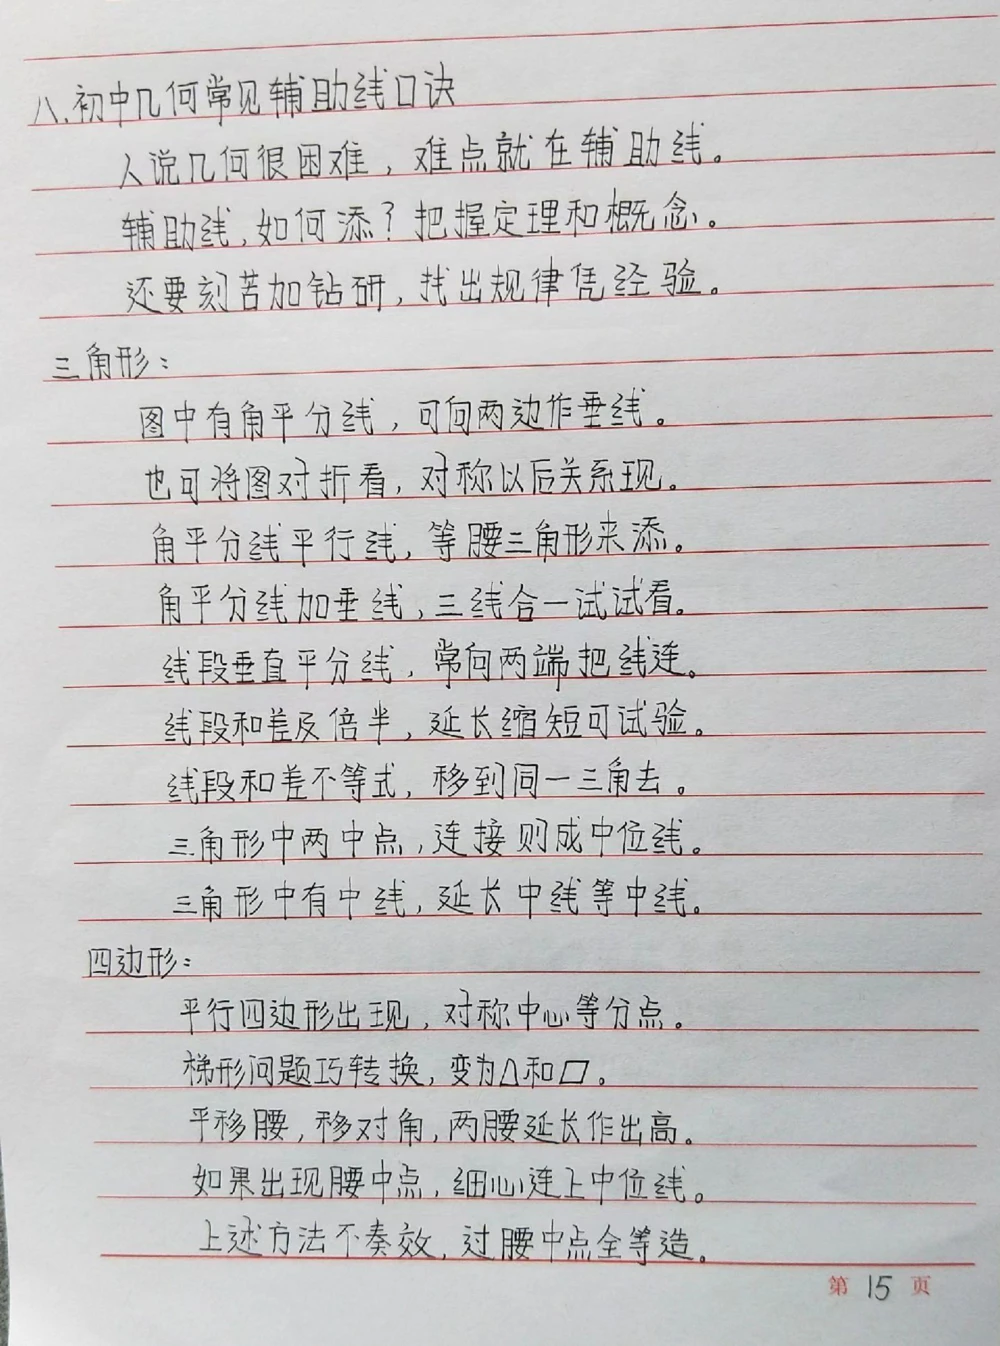 八、初中几何常见辅助线口诀
人说几何很困难，难点就在辅助线。
辅助线，如何添？把握定理和概念。
还要刻苦加钻研，找出规律凭经验。
三角形：
图中有角平分线，可向两边作垂线。
也可将图对折看，对称以后关系现。
角平分线平行线，等腰三角形来添。
角平分线加垂线，三线合一试试看。
线段垂直平分线，常向两端把线连。
线段和差及倍半，延长缩短可试验。
线段和差不等式，移到同一三角去。
三角形中两中点，连接则成中位线。
三角形中有中线，延长中线等中线。
四边形：
平行四边形出现，对称中心等分点。
梯形问题巧转换，变为△和▱。
平移腰，移对角，两腰延长作出高。
如果出现腰中点，细心连上中位线。
上述方法不奏效，过腰中点全等造。
第 15 页